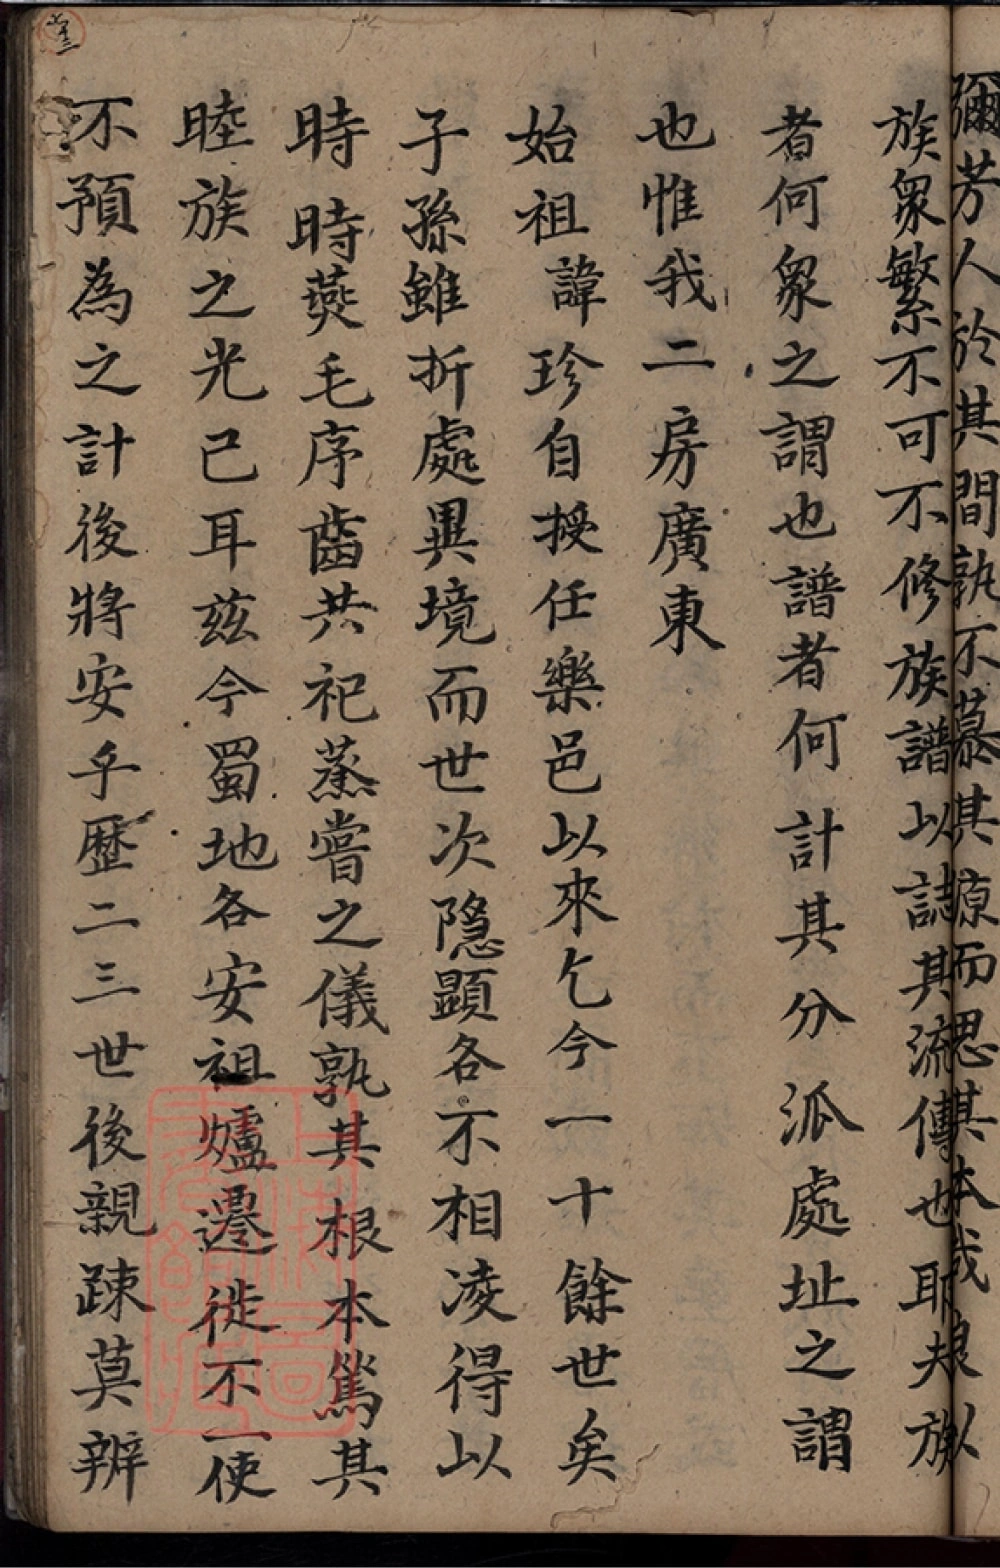 彌芳人於其間孰不慕其源而思其本哉良以
族衆繁不可不修族譜以誌其流傳也耶夫族
者何衆之謂也譜者何計其分派處址之謂
也惟我二房廣東
始祖諱珍自授任樂邑以來乞今一十餘世矣
子孫雖折處異境而世次隐顯各不相凌得以
時時燕毛序齒共祀蒸嘗之儀孰其根本篤其
睦族之光已耳茲今蜀地各安祖爐遷徙不一使
不預為之計後將安乎歷二三世後親疎莫辨